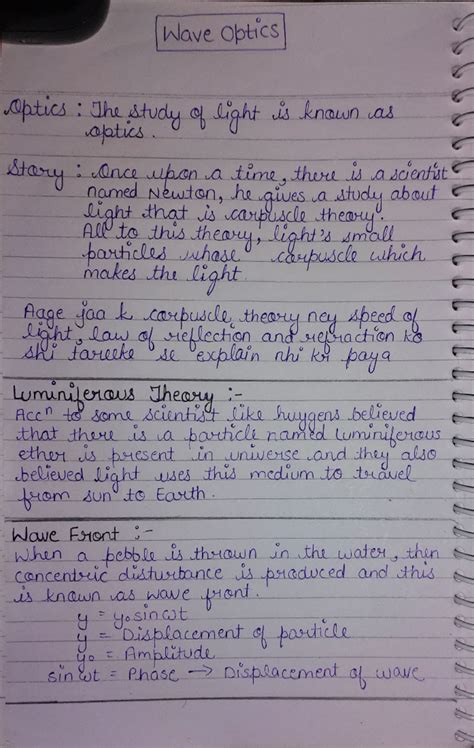 Wave Optics
Optics : The study of light is known as
optics.
Story : Once upon a time, there is a scientist
named Newton, he gives a study about
light that is carpuscle theory.
All to this theory, light's small
particles whose carpuscle which
makes the light.
Aage jaa k carpuscle theory ney speed of
light, law of reflection and refraction ko
shi tareeke se explain nhi kr paya
Luminiferous Theory :-
Accⁿ to some scientist like huygens believed
that there is a particle named luminiferous
ether is present in universe and they also
believed light uses this medium to travel
from sun to Earth.
Wave Front :-
When a pebble is thrown in the water, then
concentric disturbance is produced and this
is known as wave front.
y = y₀ sin ωt
y = Displacement of particle
y₀ = Amplitude
sin ωt = Phase → Displacement of wave